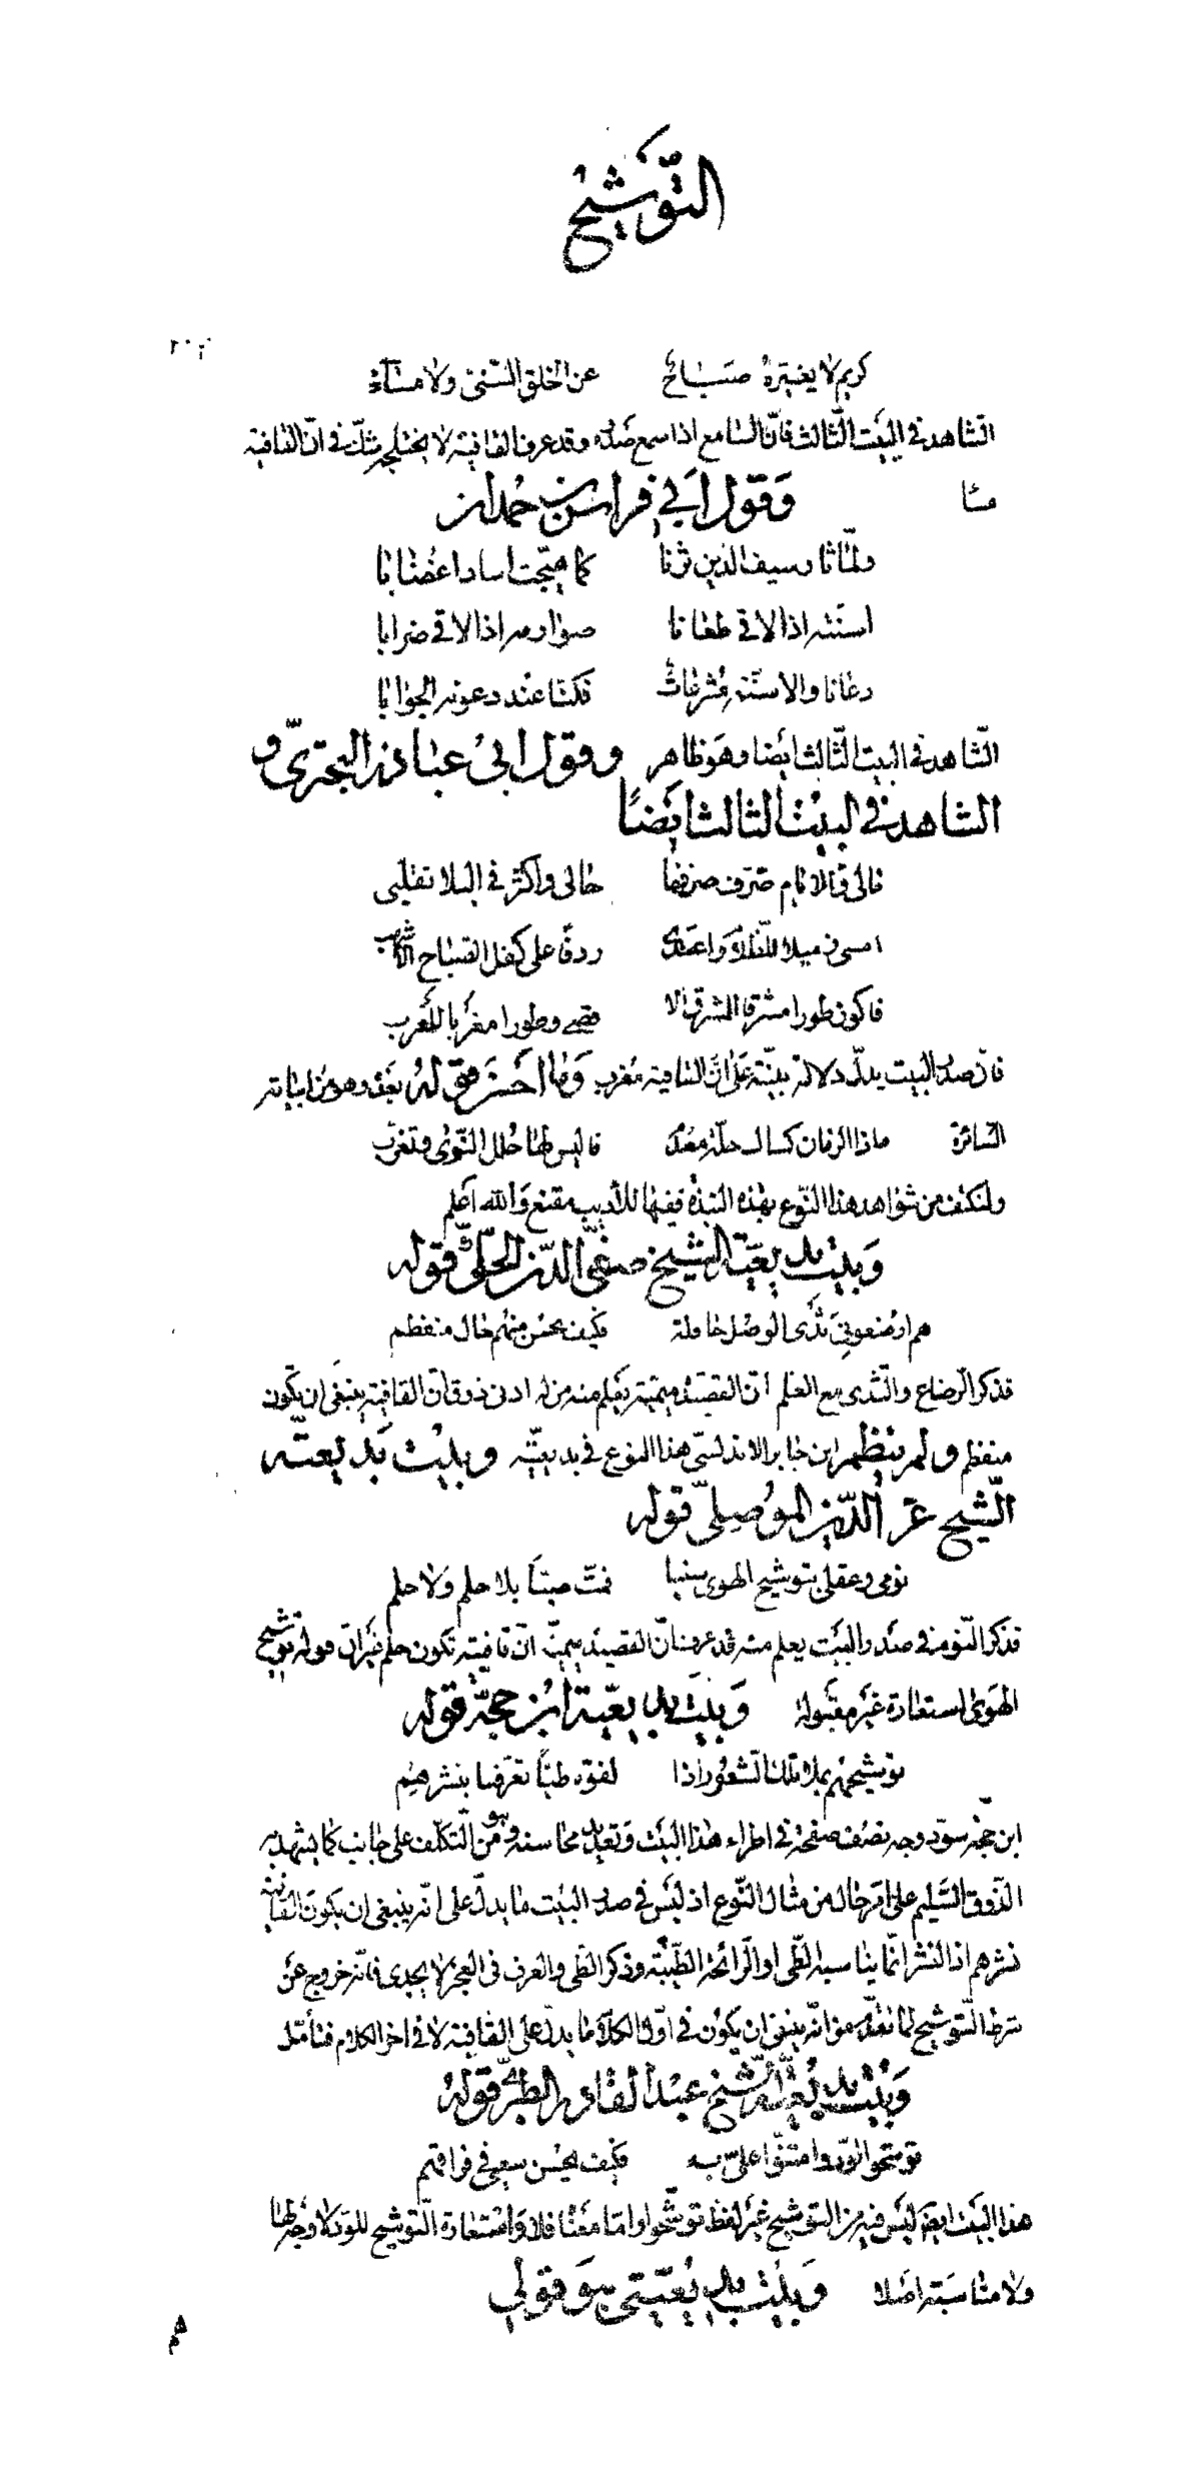 التّوشيح
٢٠٢
كريم لا يغيّره صَبَاحٌ عن الخلق السّنىّ ولا مسَآءُ
الشاهد فى البيَت الثّالث فانّ السّامع اذا سمع صَدره وقد عرف القافية لا يختلجه شكّ فى انّ القافية
مسا وَقول ابَي فراسْ بن حمدان
ولمّا ثار سيف الدّين ثرنا كما هيّجت اسادا غضابا
اسنّته اذا لاقى طعانا صوارمه اذا لاقى ضرابا
دعانا والاسنّة مُشرعات فكنّا عند دعوته الجوابا
الشّاهد فى البيت الثّالث ايضا وهَو ظاهر وقول ابىُ عبادة البحترىّ و
الشاهد فى البيْت الثالث ايَضاً
فالى الايام صَرّف صرفها حالى واكثر فى البلاد تقلبى
امسى زميلا للظّلام وَاغتدى ردفًا على كفل الصّباح الاشهب
فاكون طورا مشرقا للمشرق الا قصى وطورا مغربا للمغرب
فانّ صدر البيت يدلّ دلالة بيّنة على انّ القافية مغرب وَمَا احَسَن قولهُ بعَده وهو من ابياته
السّائرة ماذا الزمان كساك حلّة مُعدم فالبس لها حُلل النّوى وتغرّب
ولنكتف من شواهد هذا النّوع بهذه النبذة ففيها للأديب مقنع وَالله اعَلم
وَبيْت بديعيّة الشّيخ صفىّ الدّين الحلّىّ قوله
هم ارضعونى ثَدى الوصْل حافلة فكيف يحسُن منهُم حال منفطم
فذكر الرّضاع والثّدى مع العلم انّ القصيدة ميميّة يعَلم منه من له ادنى ذوق انّ القافية ينبغَى ان يكَون
منفطم ولم ينظم ابن جابر الاندلسىّ هذا النوع فى بديعيّته وبيْت بَديعيّته
الشّيخ عزّ الدّين الموُصلىّ قوله
نومى وعقلى بتوشيح الهوى سلبا فبتّ صبّاً بلا حلم ولا حلم
فذكر النّوم فى صَدر البيَت يعلم منه وقد عرف انّ القصيدة ميميّة انّ قافيته تكون حلم غيَر انّ قوله توشيح
الهَوى استعارة غيَر مقبَولة وَبيَت بديعيّة ابُن حجّة قوله
توشيحهُم بملا تلك الشّعُور اذا لفّوه طيّاً تعرّفنا بنشرهمِ
ابن حجّة سوّد وجه نصْف صفحة فى اطراء هذا البيَت وَتعديد محاسنه وهو من التّكلّف على جانب كما يشهد به
الذّوق السّليم على انّه خال من مثال النّوع اذ ليَس فى صدر البيَت ما يدلّ على انّه ينبغى ان يكَون القافية
نشرهم اذ النشر انّما يناسبه الطّى او الرّائحة الطّيّبة وذكر الطّى والعرف فى العجز لا يجدى فانّه خروج عَن
شرط التّوشيح لما تقدّم من انّه ينبغى ان يكون فى اوّل الكلام ما يدلّ على القافية لا فى اخر الكلام فتأمّل
وَبيْت بديعيّة الشّيخ عبْد القادر الطبرىّ قولهُ
توشّحوا الودّ وامتنّوا علىّ به فكيف يحسُن سعيى فى فراقهم
هذا البيَت ايضَا ليَس فيه من التوشيح غيَر لفظ توشّحوا وامّا معَنا فلا وَاستعارة التّوشيح للودّ لا وجه لها
ولا مناسبَة اصلا وَبيْت بديعيّتى هو قولي
هم